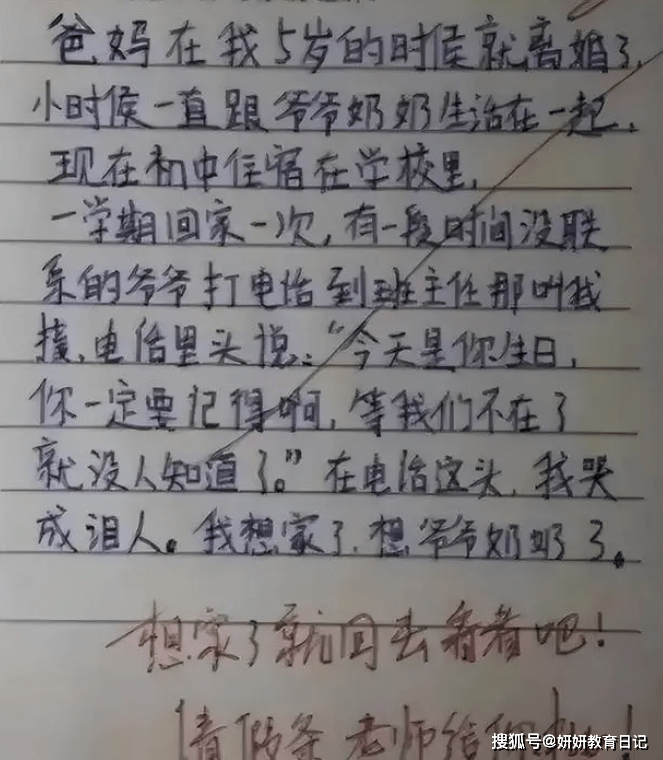 爸,妈在我5岁的时候就离婚了,
小时候一直跟爷爷奶奶生活在一起,
现在初中住宿在学校里,
一学期回家一次,有一段时间没联
系的爷爷打电话到班主任那叫我
接,电话里头说:“今天是你生日,
你一定要记得啊,等我们不在了
就没人知道了。”在电话这头,我哭
成泪人。我想家了,想爷爷奶奶了。
想家了就回去看看吧!
请假条老师给你批!
搜狐号@妍妍教育日记